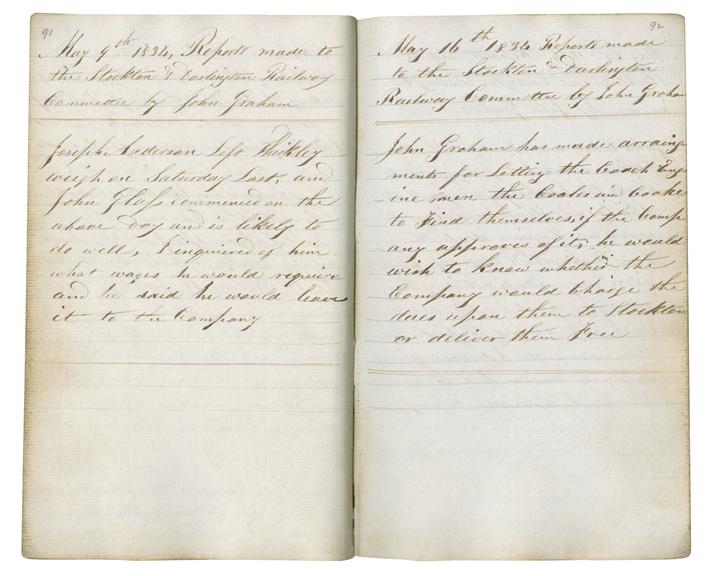 91
May 9th 1834, Reports made to
the Stockton & Darlington Railway
Committee by John Graham
Joseph Anderson left Thickley
weigh on Saturday last, and
John Glass commenced on the
above Day and is likely to
do well, I inquired of him
what wages he would require
and he said he would leave
it to the Company
92
May 16th 1834 Reports made
to the Stockton & Darlington
Railway Committee by John Graham
John Graham has made arraing
ments for letting the Coach Eng
ine men the Coales and Coake
to Find themselves, if the Comp
any approves of it, he would
wish to know whether the
Company would Charge the
dues upon them to Stockton
or deliver them Free